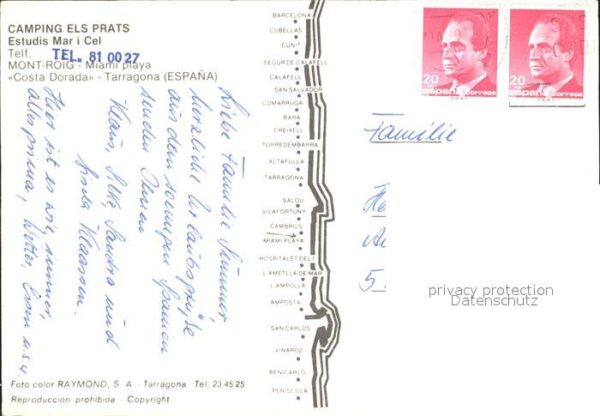 CAMPING ELS PRATS
Estudis Mar i Cel
Telf. TEL. 81 00 27
MONT-ROIG - Miami playa
«Costa Dorada» - Tarragona (ESPAÑA)
Liebe Familie
herzliche Urlaubsgrüße
aus dem sonnigen Spanien
senden Ihnen
Klaus, Elke, Sandra und
Klaassen.
Hier ist es wie immer,
alles prima, Wetter, Essen u.s.w.
Foto color RAYMOND, S. A. - Tarragona Tel. 23 45 25
Reproduccion prohibida - Copyright
BARCELONA
CUBELLAS
CUNIT
SEGUR DE CALAFELL
CALAFELL
SAN SALVADOR
COMARRUGA
BARA
CREIXELL
TORREDEMBARRA
ALTAFULLA
TARRAGONA
SALOU
VILAFORTUNY
CAMBRILS
MIAMI PLAYA
HOSPITALET DEL I.
L'AMETLLA DE MAR
L'AMPOLLA
AMPOSTA
SAN CARLOS
VINAROZ
BENICARLO
PEÑISCOLA
20
españa correos
20
españa correos
Familie
5
privacy protection
Datenschutz